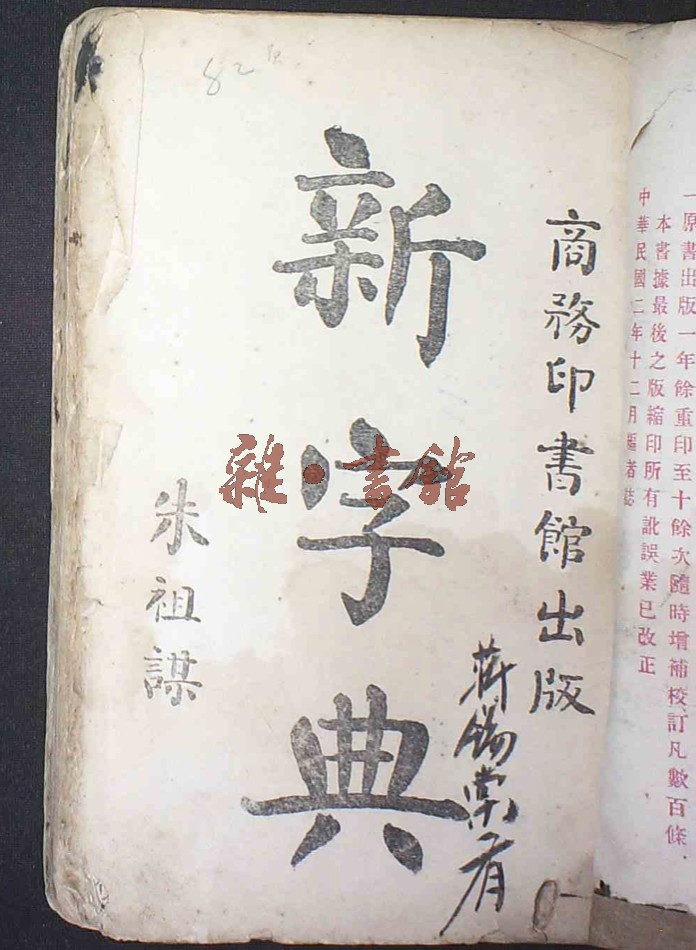 一原書出版一年餘重印至十餘次隨時增補校訂凡數百條
本書據最後之版縮印所有訛誤業已改正
中華民國二年十二月編者誌
商務印書館出版
新字典
朱祖謀
蔣錫棠肴
雜·書館
82